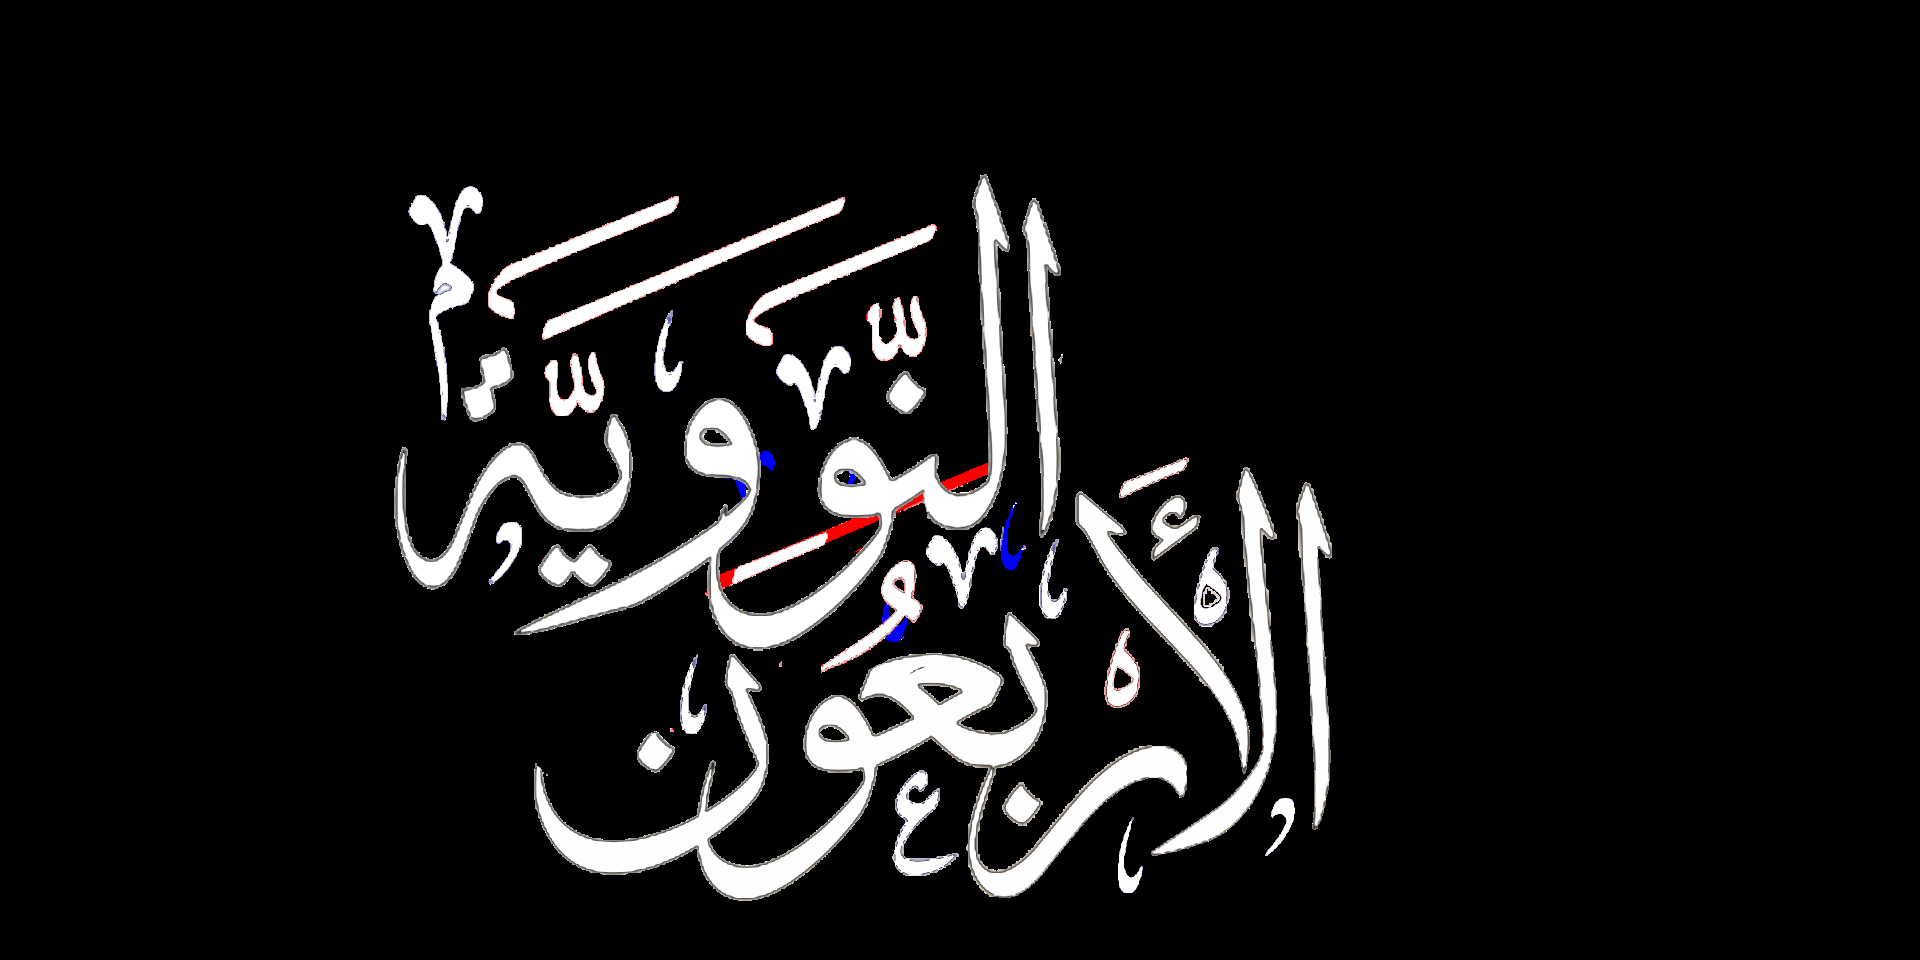 الأَرْبَعُونَ
النَّوَوِيَّة